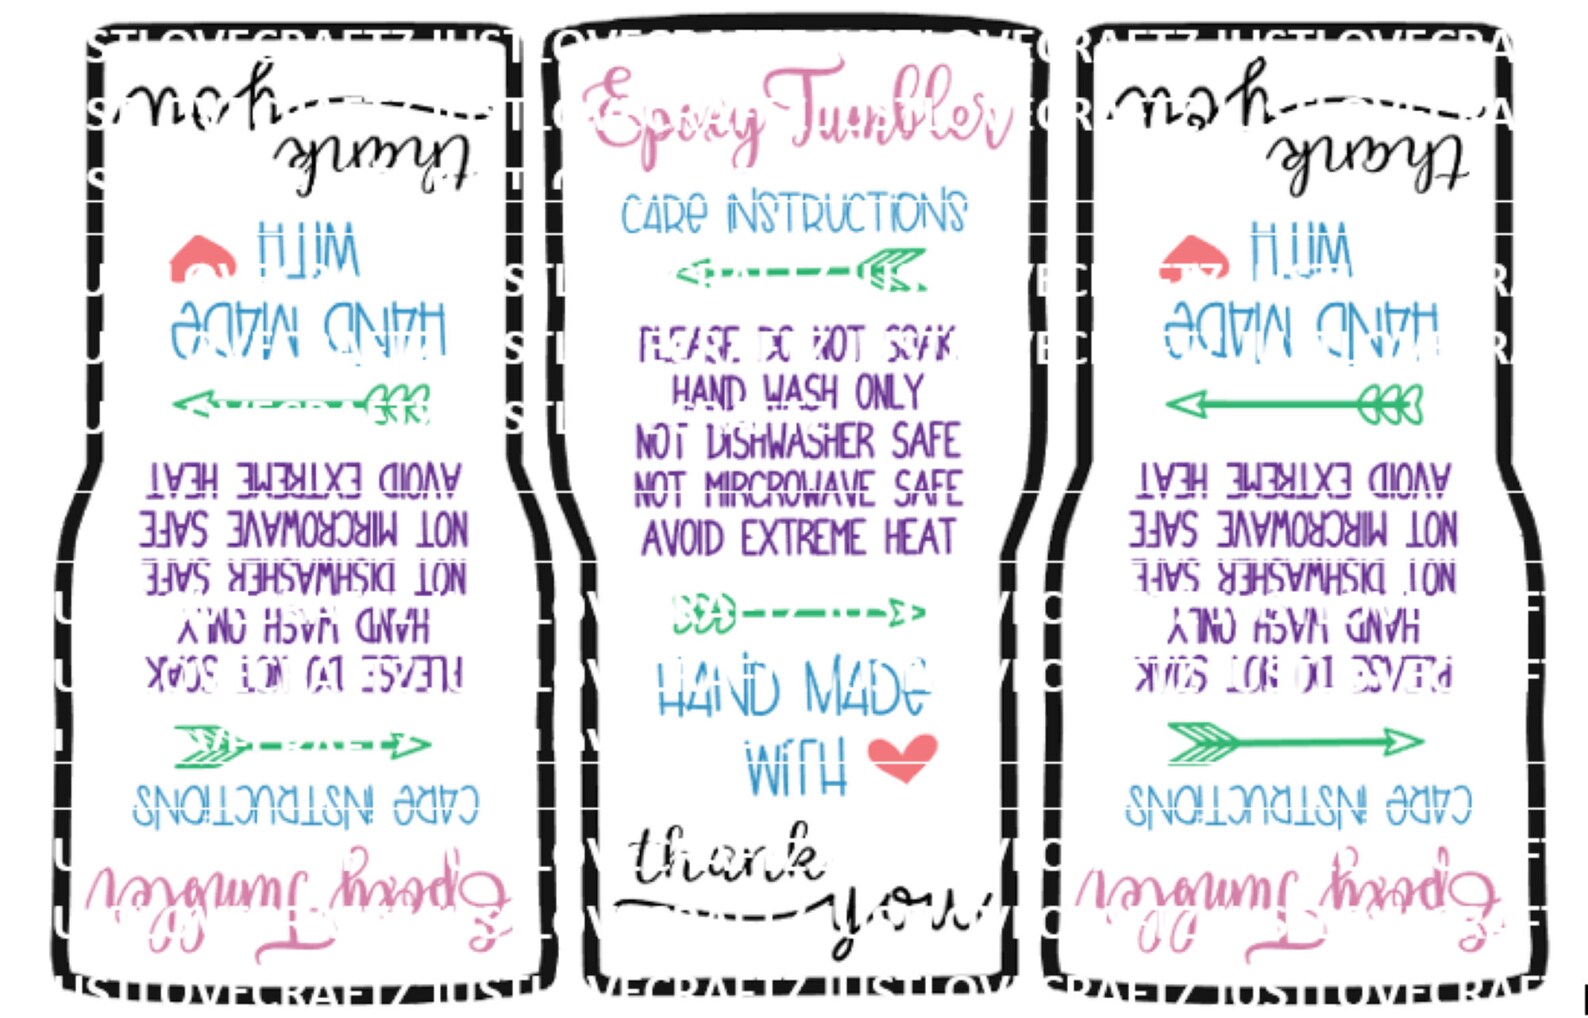 Epoxy Tumbler
CARE INSTRUCTIONS
PLEASE DO NOT SOAK
HAND WASH ONLY
NOT DISHWASHER SAFE
NOT MIRCROWAVE SAFE
AVOID EXTREME HEAT
HAND MADE
WITH
thank
you
Epoxy Tumbler
CARE INSTRUCTIONS
PLEASE DO NOT SOAK
HAND WASH ONLY
NOT DISHWASHER SAFE
NOT MIRCROWAVE SAFE
AVOID EXTREME HEAT
HAND MADE
WITH
thank
you
Epoxy Tumbler
CARE INSTRUCTIONS
PLEASE DO NOT SOAK
HAND WASH ONLY
NOT DISHWASHER SAFE
NOT MIRCROWAVE SAFE
AVOID EXTREME HEAT
HAND MADE
WITH
thank
you
JUSTLOVECRAFTZ